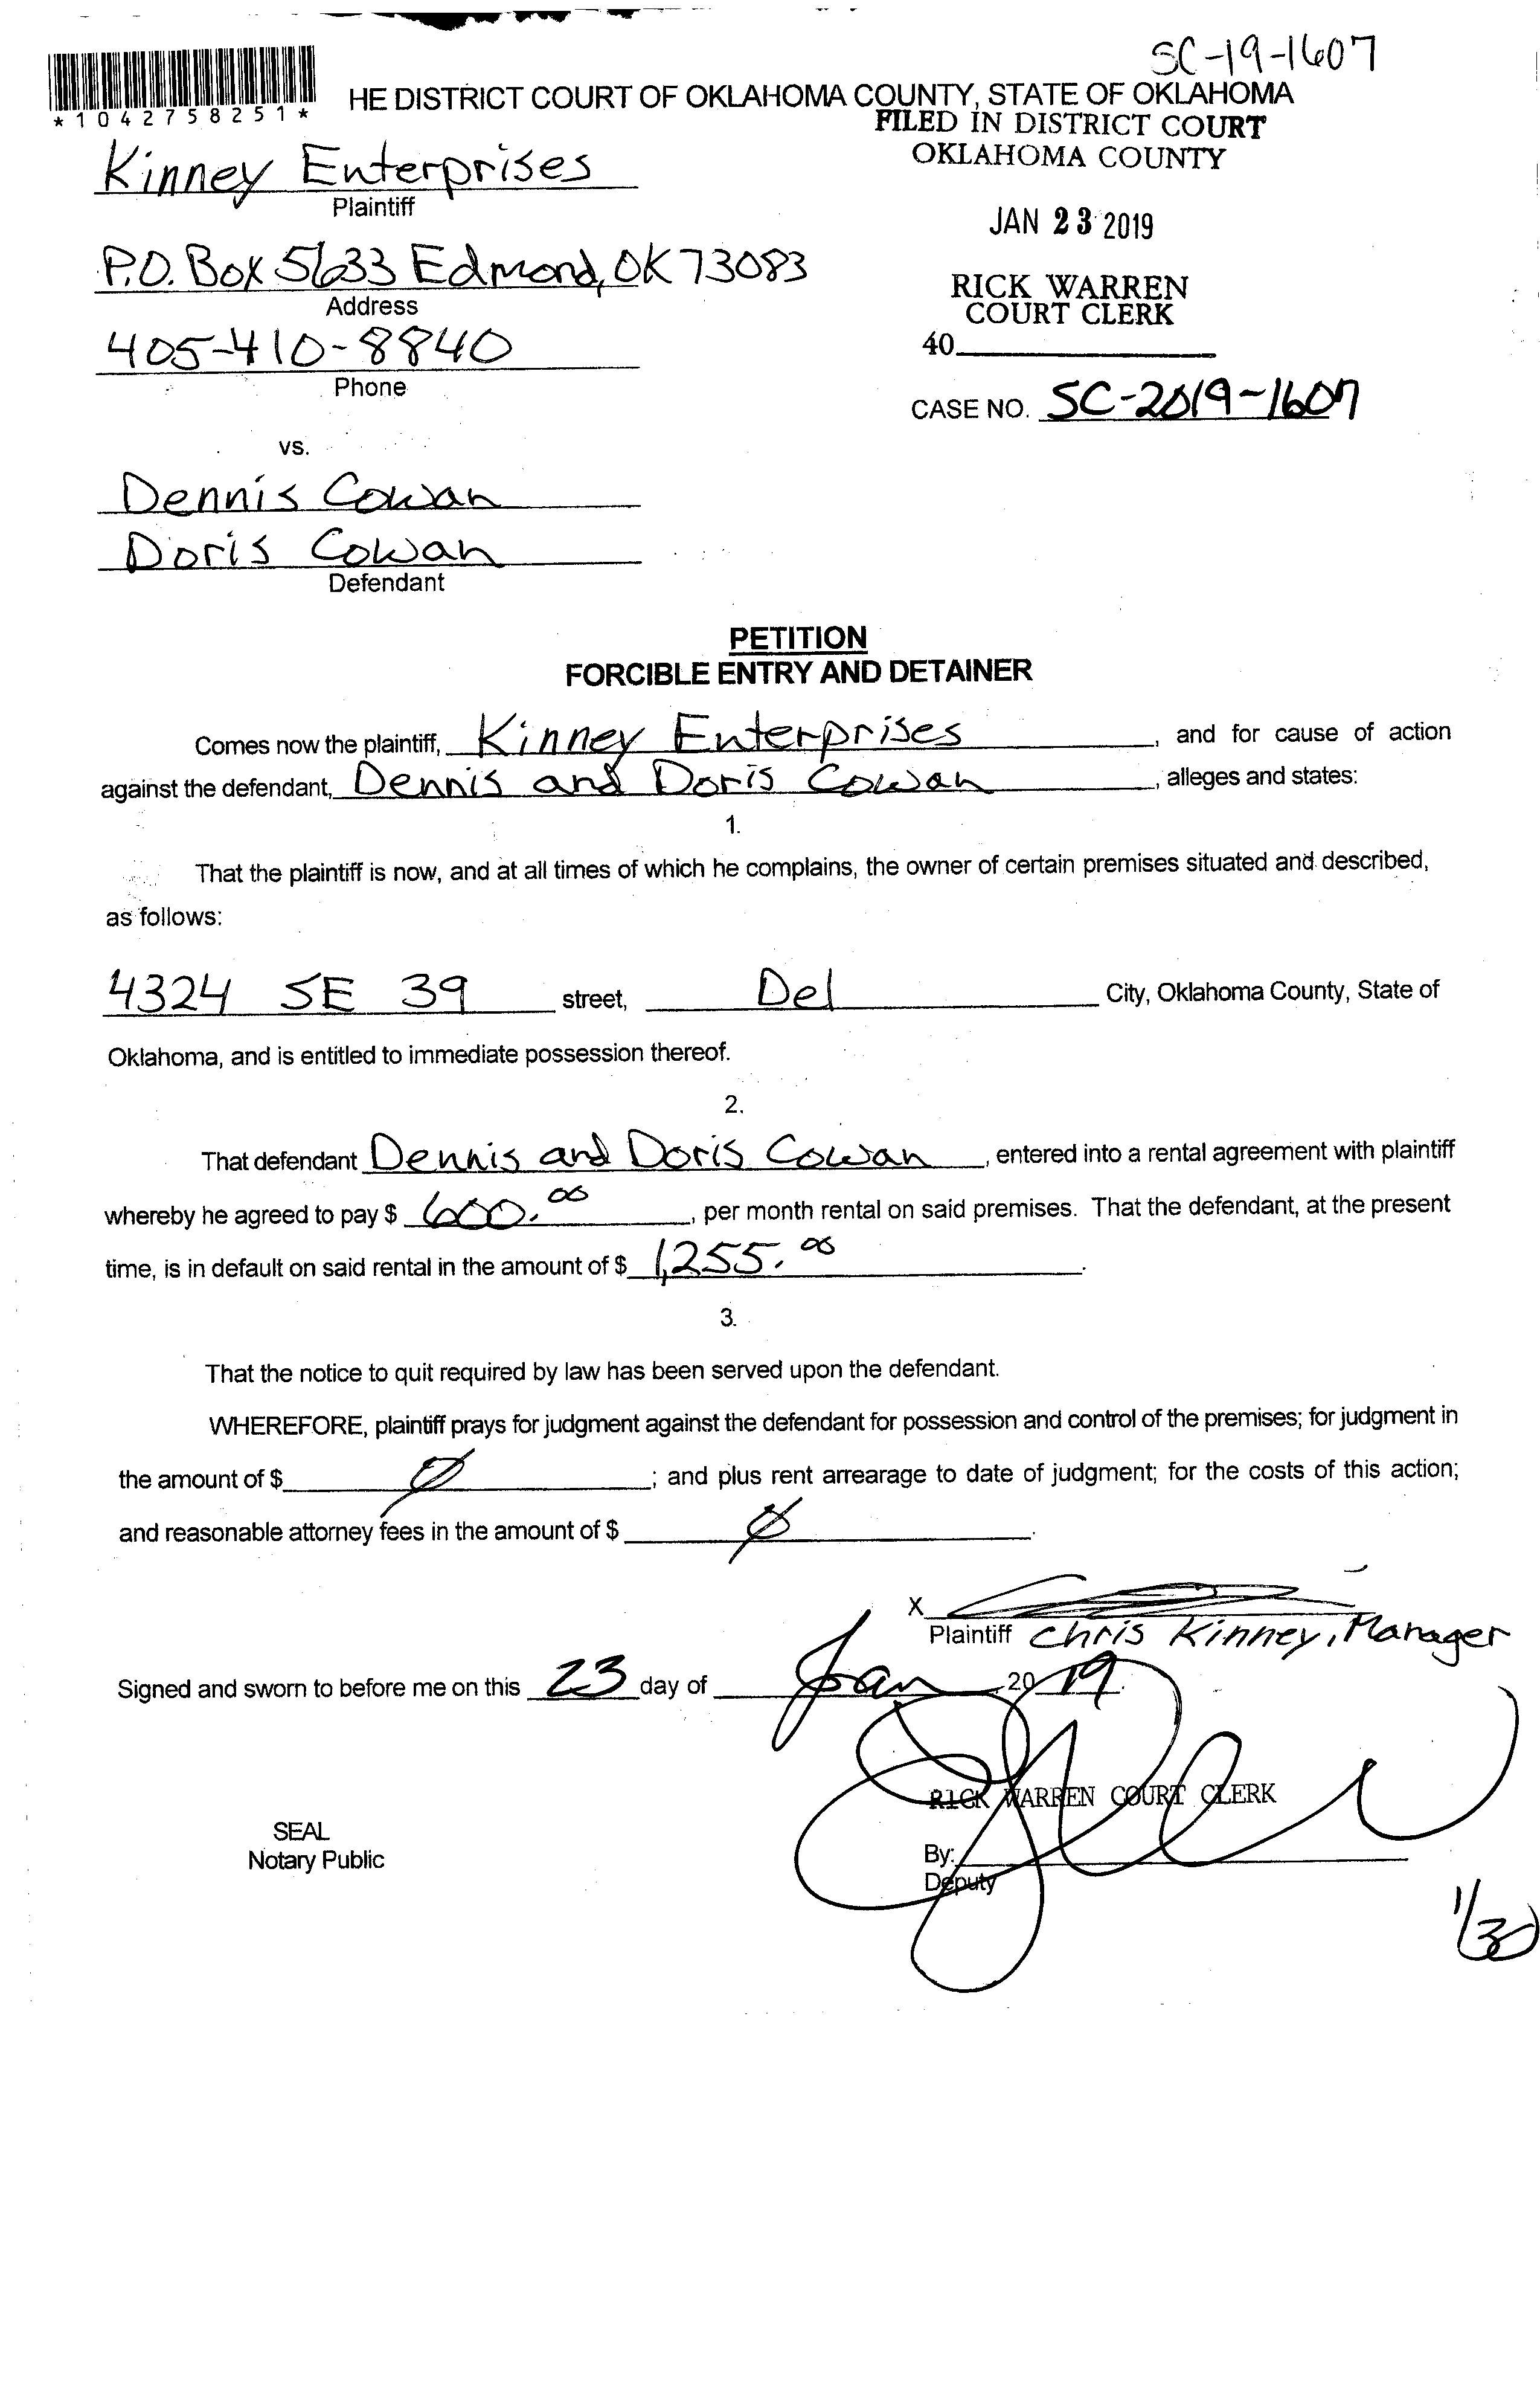 SC-19-1607
*1042758251*
HE DISTRICT COURT OF OKLAHOMA COUNTY, STATE OF OKLAHOMA
FILED IN DISTRICT COURT
OKLAHOMA COUNTY
Kinney Enterprises
Plaintiff
JAN 23 2019
P.O. Box 5633 Edmond, OK 73083
Address
RICK WARREN
COURT CLERK
405-410-8840
40
Phone
CASE NO. SC-2019-1607
vs.
Dennis Cowan
Doris Cowan
Defendant
PETITION
FORCIBLE ENTRY AND DETAINER
Comes now the plaintiff, Kinney Enterprises, and for cause of action
against the defendant, Dennis and Doris Cowan, alleges and states:
1.
That the plaintiff is now, and at all times of which he complains, the owner of certain premises situated and described,
as follows:
4324 SE 39 street, Del City, Oklahoma County, State of
Oklahoma, and is entitled to immediate possession thereof.
2.
That defendant Dennis and Doris Cowan, entered into a rental agreement with plaintiff
whereby he agreed to pay $ 600.00, per month rental on said premises. That the defendant, at the present
time, is in default on said rental in the amount of $ 1,255.00.
3.
That the notice to quit required by law has been served upon the defendant.
WHEREFORE, plaintiff prays for judgment against the defendant for possession and control of the premises; for judgment in
the amount of $ Ø; and plus rent arrearage to date of judgment; for the costs of this action;
and reasonable attorney fees in the amount of $ Ø.
X
Plaintiff Chris Kinney, Manager
Signed and sworn to before me on this 23 day of Jan, 20 19.
RICK WARREN COURT CLERK
SEAL
Notary Public
By:
Deputy
1/30